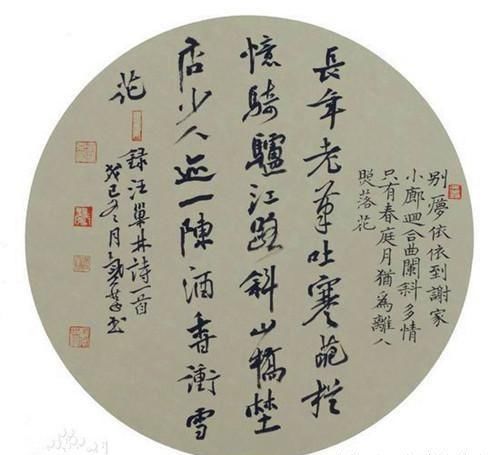 别夢依依到謝家
小廊回合曲闌斜多情
只有春庭月猶為離人
照落花
長年老筆吐寒葩猶
憶騎驢江路斜山橋埜
店少人迹一陣酒香衝雪
花
錄汪巢林詩首
癸巳冬月書